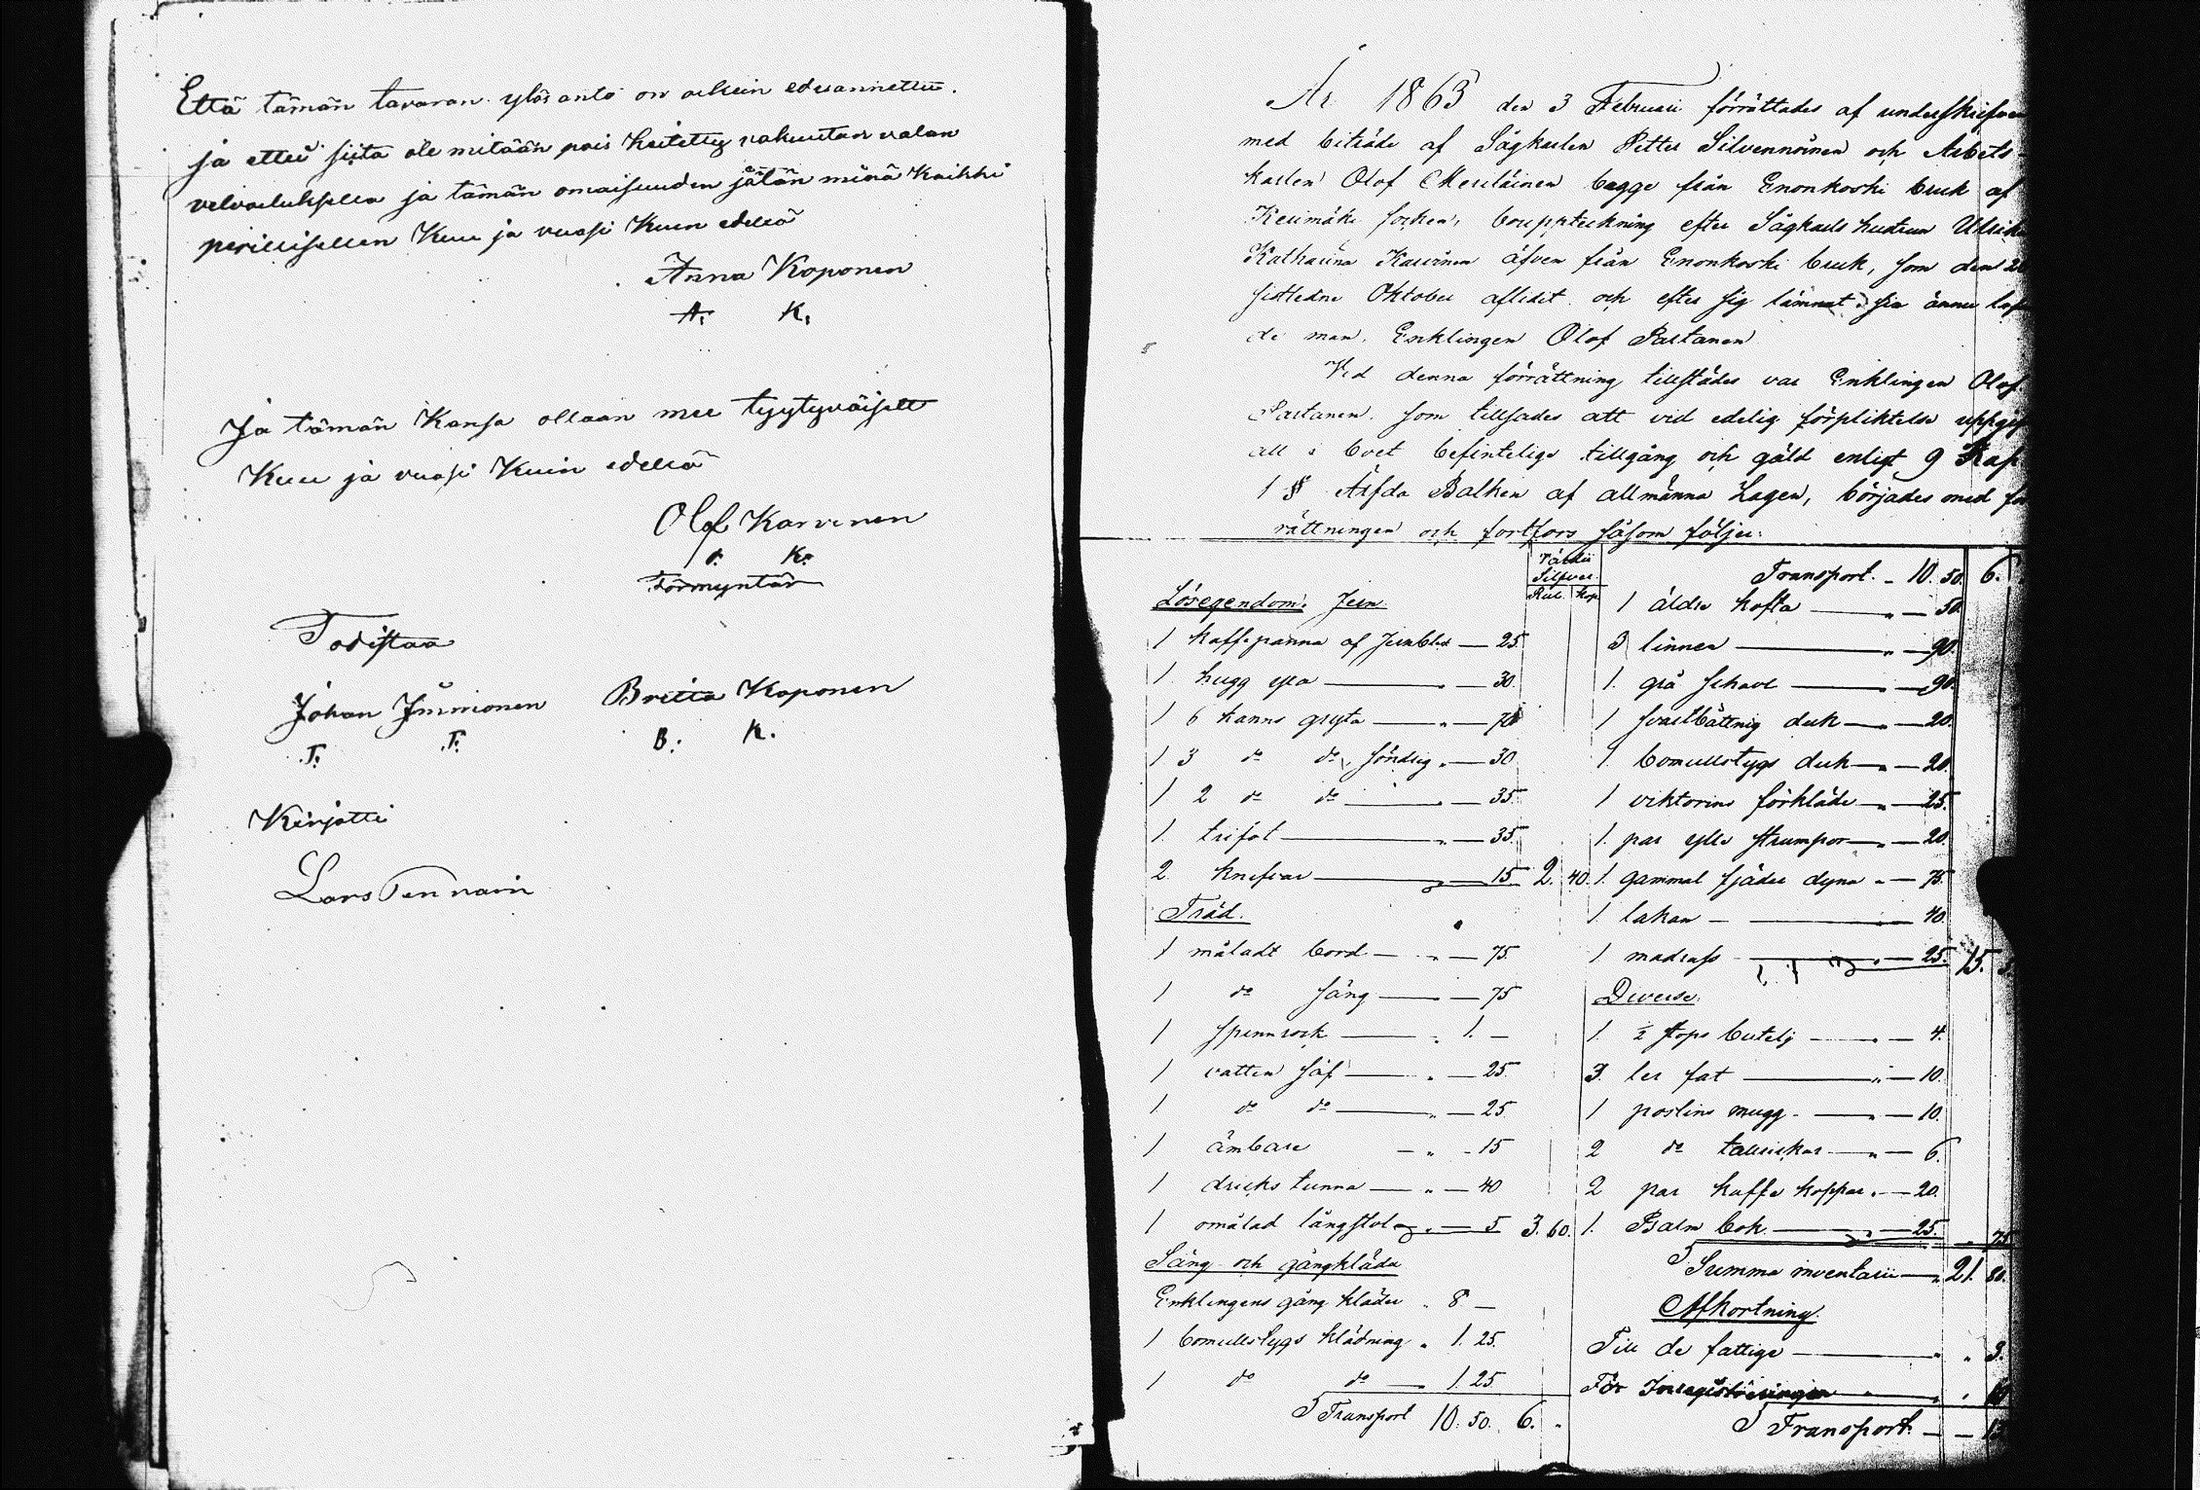 Että tämän tavaran ylös anto on oikein edesannettu.
ja ettei siitä ole mitään pois keitetty vakuutan valan
velvoituksella ja tämän omaisuuden jätän minä kaikki
perillisellen Kuu ja vuosi Kuin edellä
Anna Koponen
A. K.
Ja tämän Kansa ollaan mee tyytyväiset
Kuu ja vuosi Kuin edellä
Olof Karvinen
O. K.
Förmyntär
Todistaa
Johan Immonen Britta Koponen
J. I. B. K.
Kirjotti
Lars Tennarin
År 1863 den 3 Februari förrättades af
med biträde af Sågkarlen Petter Silvennoinen och Arbets-
karlen Olof Meriläinen begge från Enonkoski bruk af
Kerimäki socken, bouppteckning efter Sågkarls hustrun
Katharina Karvinen äfven från Enonkoski bruk, som den
sistledne Oktober aflidit och efter sig lämnat sin ännu
de man, Enklingen Olof Partanen
Ved denna förrättning tillstädes var Enklingen Olof
Partanen. som tillsades att vid edelig förpliktelse
all i boet befintelige tillgång och gäld enligt 9 Kap
1 § Ärfda Balken af allmänna Lagen, börjades med
rättningen och fortfors såsom följer:
Värde
Silfver
Rub. Kop.
Lösegendom. Jern
1 kaffepanna af Jernbleck — 25
1 hugg yxa — " — 30
1 6 kanns gryta — " — 70
1 3 do do söndrig " — 30
1 2 do do — " — 35
1 trifot — " — 35
2 knifvar — " — 15 2. 40.
Träd.
1 måladt bord — " — 75
1 do säng — " — 75
1 spinnrock — " 1. —
1 vatten såf — " — 25
1 do do — " — 25
1 ämbare — " — 15
1 dricks tunna — " — 40
1 omålad långstol — " — 5 3. 60.
Säng och gångkläder
Enklingens gång kläder " 8 —
1 bomullstygs klädning " 1. 25.
1 do do — 1. 25
Transport 10. 50. 6. "
Transport. — 10. 50. 6.
1 äldre kofta — " — 50
3 linnen — " — 90.
1. grå schavl — " — 90.
1 svartbåttnig duk — " — 20.
1. bomullstygs duk — " — 20.
1 viktorins förkläde — " — 25.
1. par ylle strumpor — " — 20.
1. gammal fjäder dyna " — 75.
1. lakan — — 40.
1 madrass — " — 25. 15.
Diverse.
1. ½ stops butelj — " — 4.
3. ler fat — " — 10.
1 poslins mugg — " — 10.
2 do tallrickar — " — 6.
2 par kaffe koppar " — 20.
1. Psalm bok — " — 25. " 75
Summa inventarii — " 21. 80.
Afkortning.
Till de fattige — " " 3.
För Inregistreringen — " "
Transport. — —